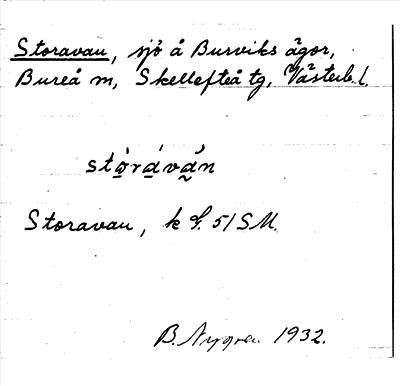 Storavan, sjö å Burviks ägor,
Bureå sn, Skellefteå tg, Västerb. l.
stòráván
Storavan, k f. 51 SM.
B. Nygren 1932.